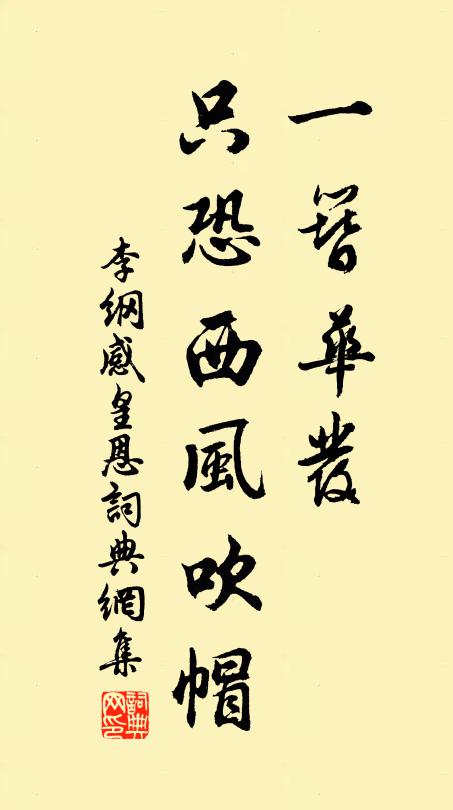 一簪華發
只恐西風吹帽
李綱感皇恩詞典網集
詞典网印